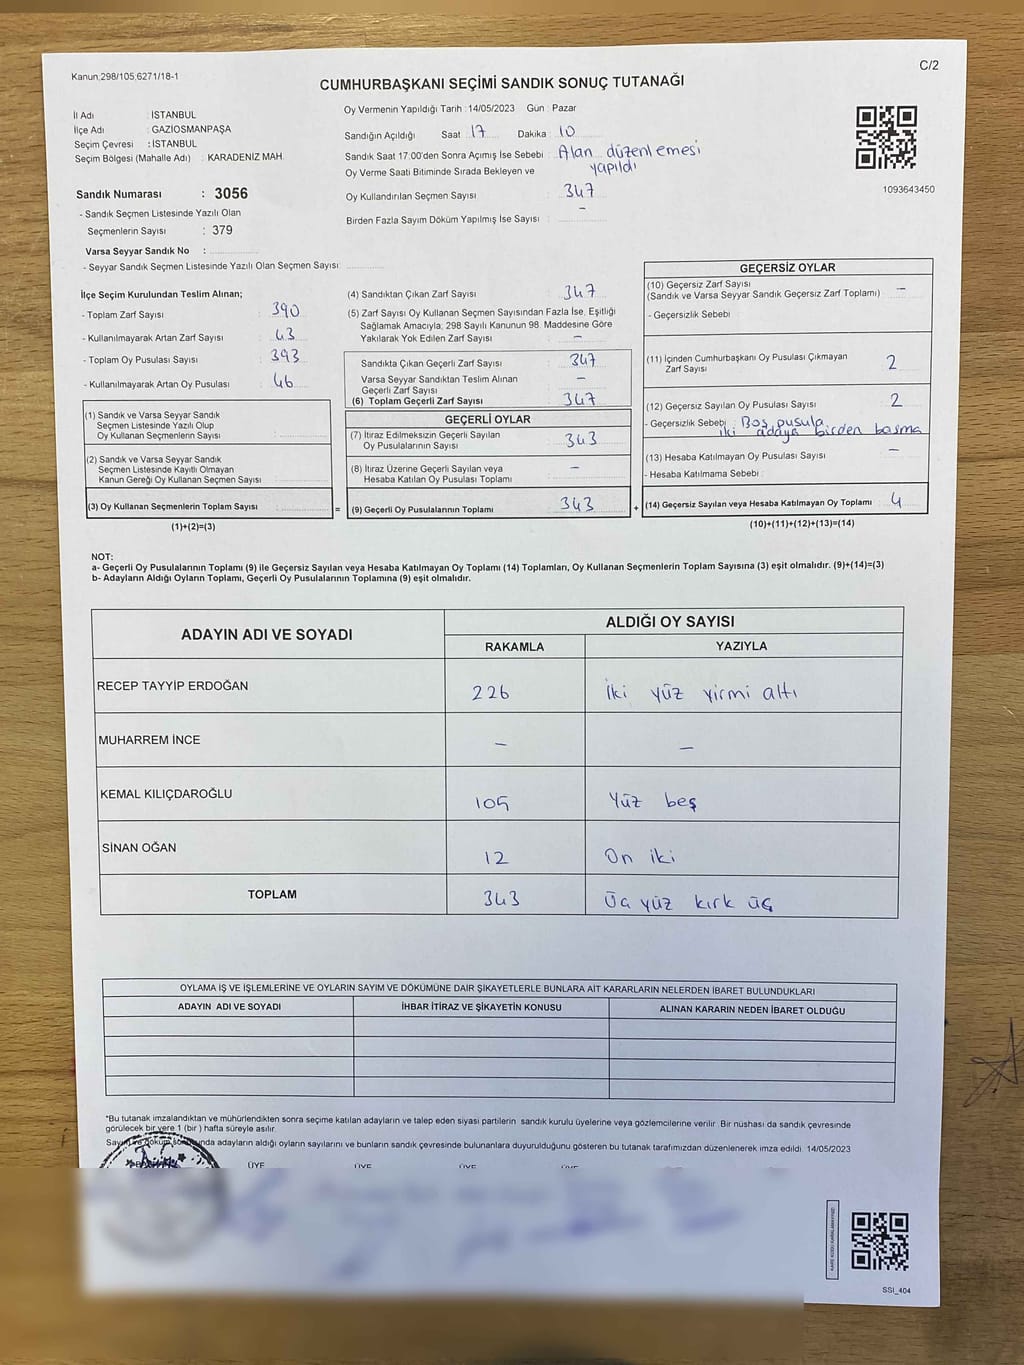 Kanun,298/105,6271/18-1
C/2
CUMHURBAŞKANI SEÇİMİ SANDIK SONUÇ TUTANAĞI
İl Adı : İSTANBUL
İlçe Adı : GAZİOSMANPAŞA
Seçim Çevresi : İSTANBUL
Seçim Bölgesi (Mahalle Adı) : KARADENİZ MAH.
Sandık Numarası : 3056
- Sandık Seçmen Listesinde Yazılı Olan
Seçmenlerin Sayısı : 379
Varsa Seyyar Sandık No :
- Seyyar Sandık Seçmen Listesinde Yazılı Olan Seçmen Sayısı:
Oy Vermenin Yapıldığı Tarih : 14/05/2023 Gün : Pazar
Sandığın Açıldığı Saat 17 Dakika 10
Sandık Saat 17:00'den Sonra Açımış İse Sebebi : Alan düzenlemesi
yapıldı
Oy Verme Saati Bitiminde Sırada Bekleyen ve
Oy Kullandırılan Seçmen Sayısı : 347
Birden Fazla Sayım Döküm Yapılmış İse Sayısı : –
1093643450
İlçe Seçim Kurulundan Teslim Alınan;
- Toplam Zarf Sayısı : 390
- Kullanılmayarak Artan Zarf Sayısı : 43
- Toplam Oy Pusulası Sayısı : 393
- Kullanılmayarak Artan Oy Pusulası : 46
(1) Sandık ve Varsa Seyyar Sandık
Seçmen Listesinde Yazılı Olup
Oy Kullanan Seçmenlerin Sayısı :
(2) Sandık ve Varsa Seyyar Sandık
Seçmen Listesinde Kayıtlı Olmayan
Kanun Gereği Oy Kullanan Seçmen Sayısı :
(3) Oy Kullanan Seçmenlerin Toplam Sayısı : =
(1)+(2)=(3)
(4) Sandıktan Çıkan Zarf Sayısı : 347
(5) Zarf Sayısı Oy Kullanan Seçmen Sayısından Fazla İse, Eşitliği
Sağlamak Amacıyla; 298 Sayılı Kanunun 98. Maddesine Göre
Yakılarak Yok Edilen Zarf Sayısı : –
Sandıkta Çıkan Geçerli Zarf Sayısı : 347
Varsa Seyyar Sandıktan Teslim Alınan
Geçerli Zarf Sayısı : –
(6) Toplam Geçerli Zarf Sayısı : 347
GEÇERLİ OYLAR
(7) İtiraz Edilmeksizin Geçerli Sayılan
Oy Pusulalarının Sayısı : 343
(8) İtiraz Üzerine Geçerli Sayılan veya
Hesaba Katılan Oy Pusulası Toplamı : –
(9) Geçerli Oy Pusulalarının Toplamı : 343 +
GEÇERSİZ OYLAR
(10) Geçersiz Zarf Sayısı
(Sandık ve Varsa Seyyar Sandık Geçersiz Zarf Toplamı) : –
- Geçersizlik Sebebi :
(11) İçinden Cumhurbaşkanı Oy Pusulası Çıkmayan
Zarf Sayısı : 2
(12) Geçersiz Sayılan Oy Pusulası Sayısı : 2
- Geçersizlik Sebebi : Boş pusula
iki adaya birden basma
(13) Hesaba Katılmayan Oy Pusulası Sayısı : –
- Hesaba Katılmama Sebebi :
(14) Geçersiz Sayılan veya Hesaba Katılmayan Oy Toplamı : 4
(10)+(11)+(12)+(13)=(14)
NOT:
a- Geçerli Oy Pusulalarının Toplamı (9) ile Geçersiz Sayılan veya Hesaba Katılmayan Oy Toplamı (14) Toplamları, Oy Kullanan Seçmenlerin Toplam Sayısına (3) eşit olmalıdır. (9)+(14)=(3)
b- Adayların Aldığı Oyların Toplamı, Geçerli Oy Pusulalarının Toplamına (9) eşit olmalıdır.
ADAYIN ADI VE SOYADI
ALDIĞI OY SAYISI
RAKAMLA YAZIYLA
RECEP TAYYİP ERDOĞAN 226 İki yüz yirmi altı
MUHARREM İNCE – –
KEMAL KILIÇDAROĞLU 105 Yüz beş
SİNAN OĞAN 12 On iki
TOPLAM 343 Üç yüz kırk üç
OYLAMA İŞ VE İŞLEMLERİNE VE OYLARIN SAYIM VE DÖKÜMÜNE DAİR ŞİKAYETLERLE BUNLARA AİT KARARLARIN NELERDEN İBARET BULUNDUKLARI
ADAYIN ADI VE SOYADI İHBAR İTİRAZ VE ŞİKAYETİN KONUSU ALINAN KARARIN NEDEN İBARET OLDUĞU
*Bu tutanak imzalandıktan ve mühürlendikten sonra seçime katılan adayların ve talep eden siyasi partilerin sandık kurulu üyelerine veya gözlemcilerine verilir. Bir nüshası da sandık çevresinde
görülecek bir yere 1 (bir ) hafta süreyle asılır.
adayların aldığı oyların sayılarını ve bunların sandık çevresinde bulunanlara duyurulduğunu gösteren bu tutanak tarafımızdan düzenlenerek imza edildi. 14/05/2023
ÜYE ÜYE ÜYE ÜYE
SSI_404